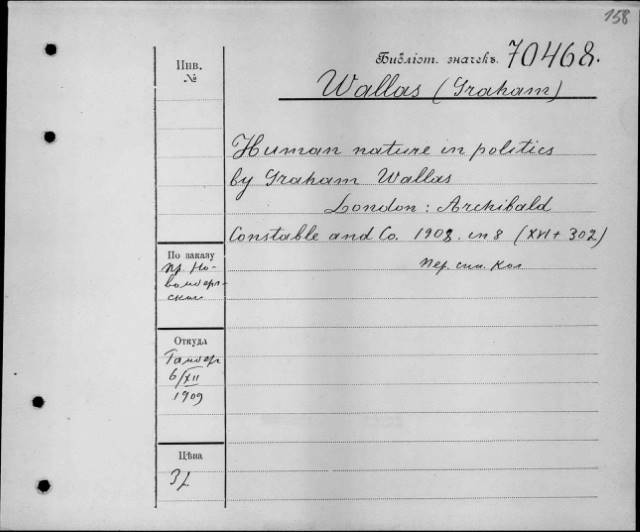 158
Библіот. значекъ. 70468.
Инв.
№
Wallas (Graham)
Human nature in politics
by Graham Wallas
London : Archibald
Constable and Co. 1908. in 8 (XVI + 302)
По заказу
пр. Но-
Пер. син. кол
Откуда
6/XII
1909
Цѣна